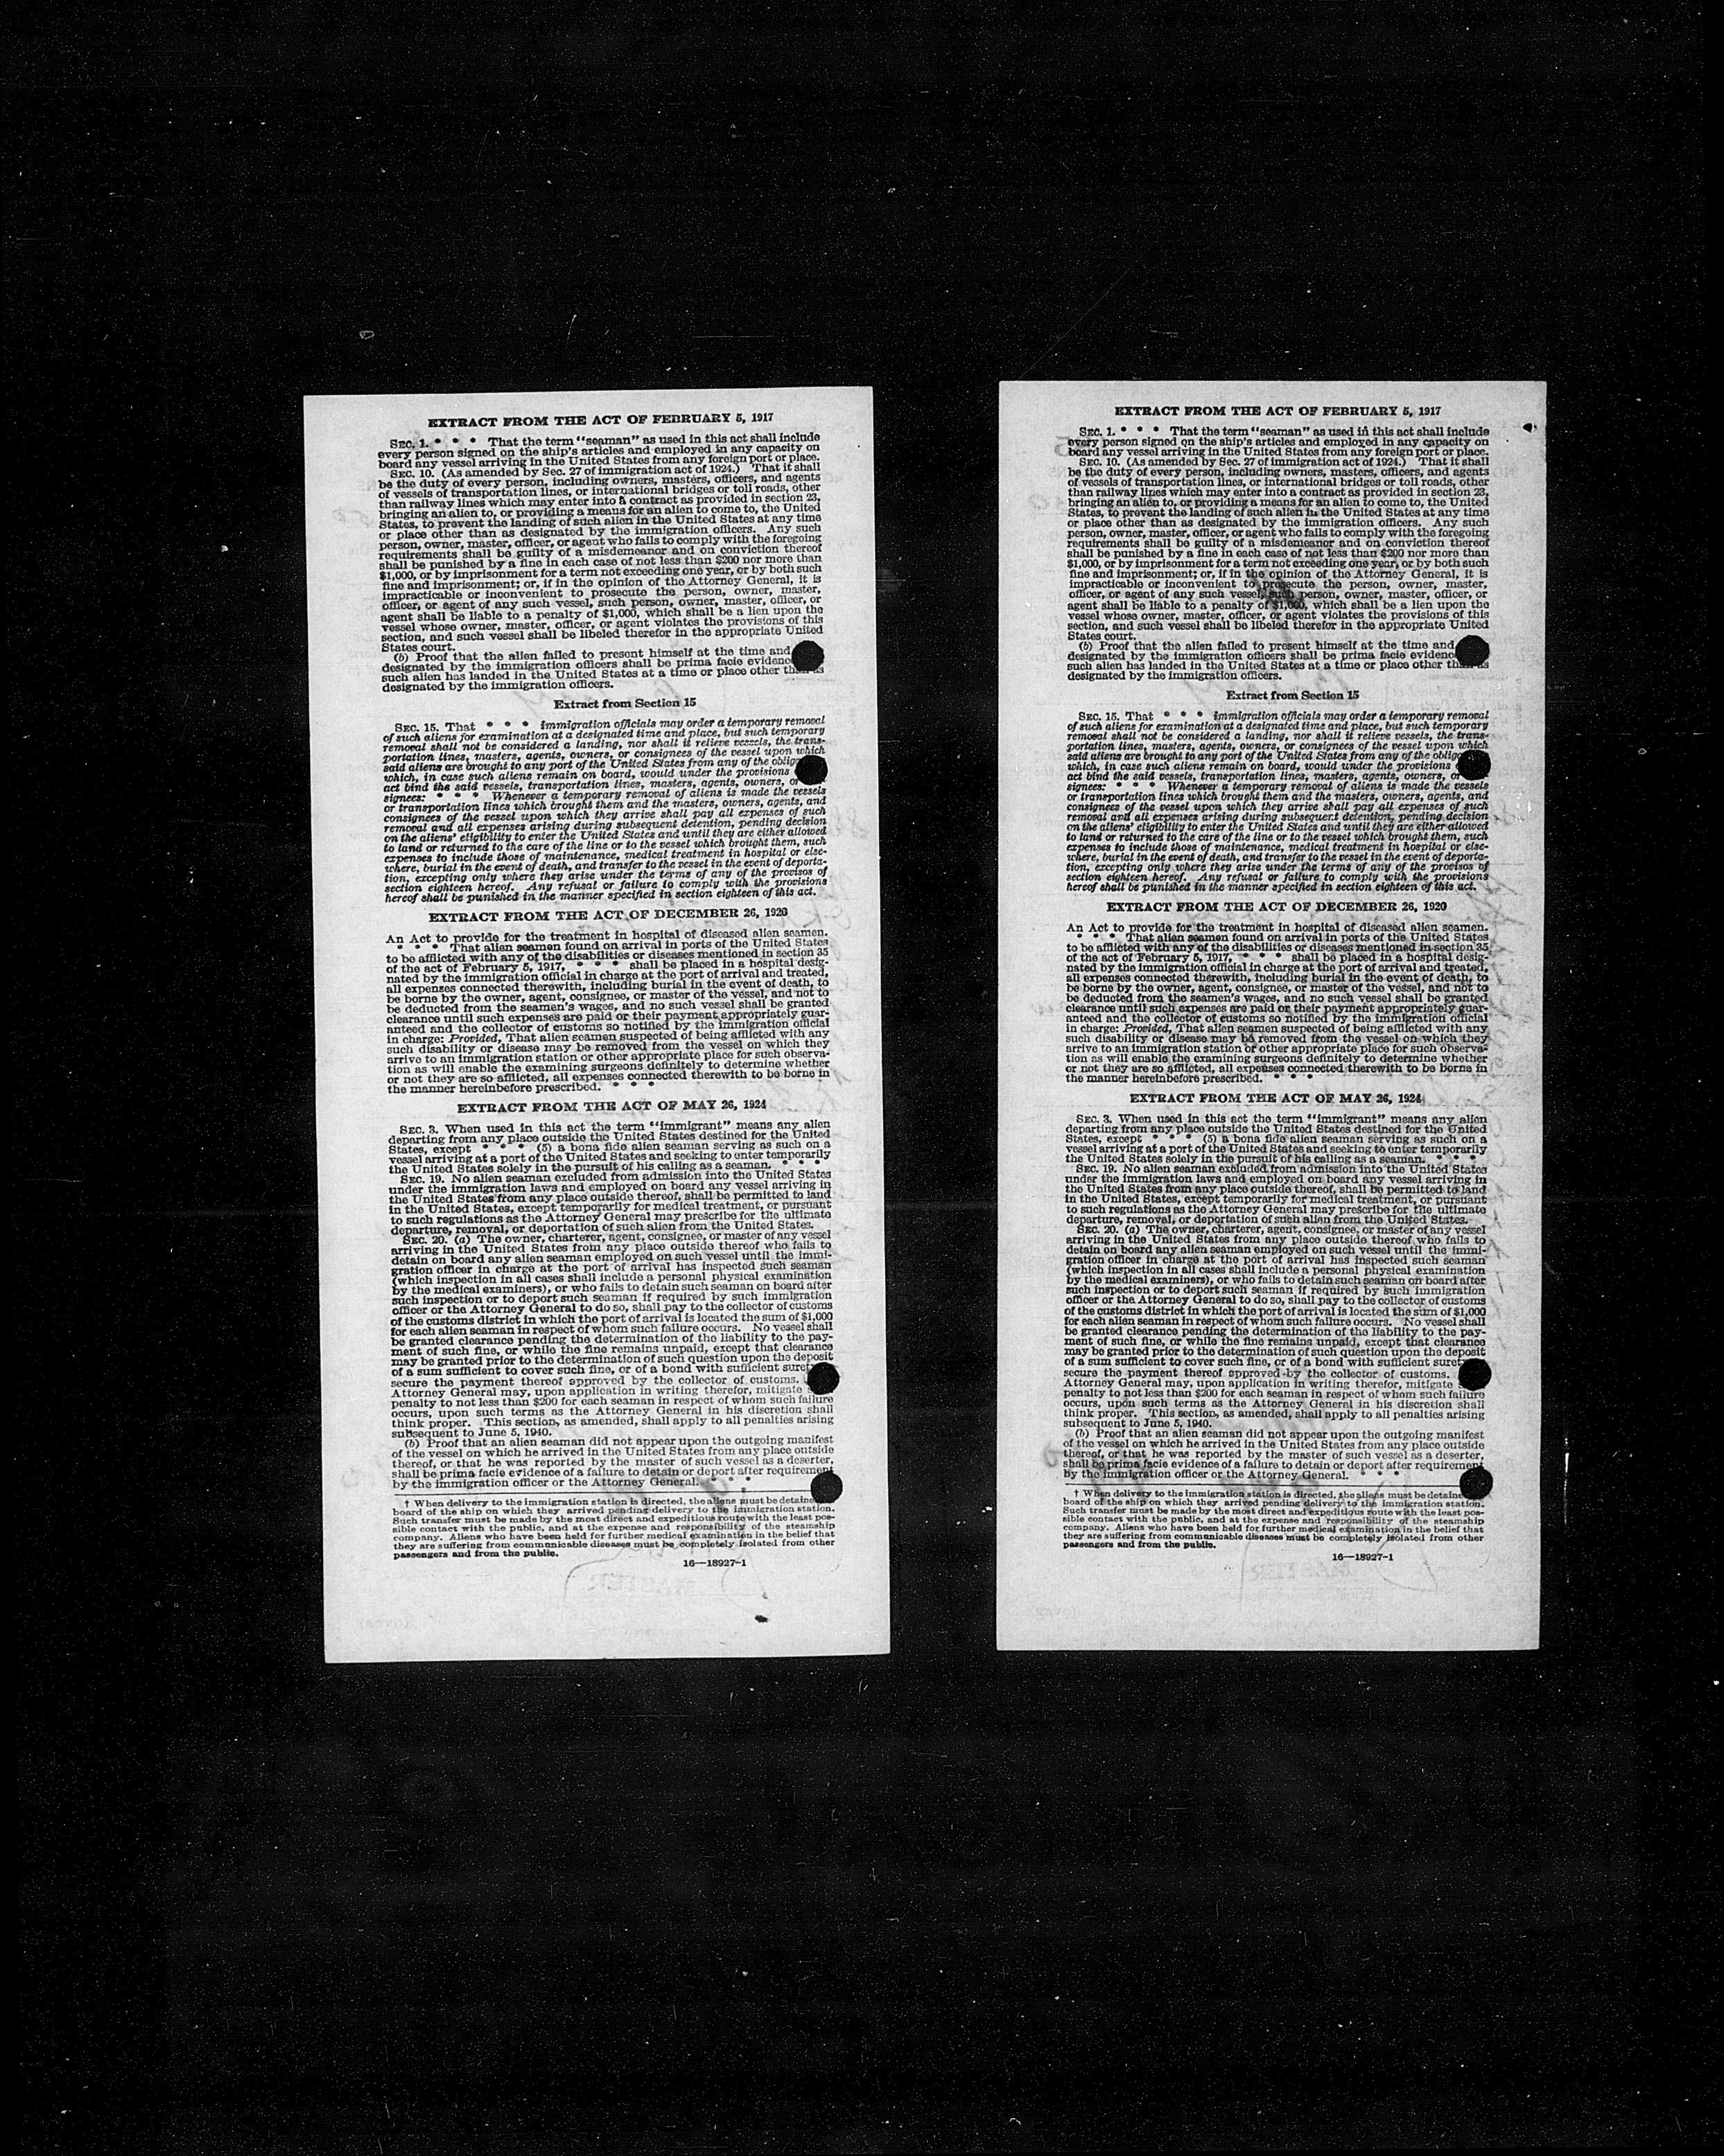 EXTRACT FROM THE ACT OF FEBRUARY 5, 1917
SEC. 1. * * * That the term "seaman" as used in this act shall include
every person signed on the ship's articles and employed in any capacity on
board any vessel arriving in the United States from any foreign port or place.
SEC. 10. (As amended by Sec. 27 of immigration act of 1924.) That it shall
be the duty of every person, including owners, masters, officers, and agents
of vessels of transportation lines, or international bridges or toll roads, other
than railway lines which may enter into a contract as provided in section 23,
bringing an alien to, or providing a means for an alien to come to, the United
States, to prevent the landing of such alien in the United States at any time
or place other than as designated by the immigration officers. Any such
person, owner, master, officer, or agent who fails to comply with the foregoing
requirements shall be guilty of a misdemeanor and on conviction thereof
shall be punished by a fine in each case of not less than $200 nor more than
$1,000, or by imprisonment for a term not exceeding one year, or by both such
fine and imprisonment; or, if in the opinion of the Attorney General, it is
impracticable or inconvenient to prosecute the person, owner, master,
officer, or agent of any such vessel, such person, owner, master, officer, or
agent shall be liable to a penalty of $1,000, which shall be a lien upon the
vessel whose owner, master, officer, or agent violates the provisions of this
section, and such vessel shall be libeled therefor in the appropriate United
States court.
(b) Proof that the alien failed to present himself at the time and
designated by the immigration officers shall be prima facie evidenc
such alien has landed in the United States at a time or place other than as
designated by the immigration officers.
Extract from Section 15
SEC. 15. That * * * immigration officials may order a temporary removal
of such aliens for examination at a designated time and place, but such temporary
removal shall not be considered a landing, nor shall it relieve vessels, the trans-
portation lines, masters, agents, owners, or consignees of the vessel upon which
said aliens are brought to any port of the United States from any of the oblig
which, in case such aliens remain on board, would under the provisions
act bind the said vessels, transportation lines, masters, agents, owners, or
signees: * * * Whenever a temporary removal of aliens is made the vessels
or transportation lines which brought them and the masters, owners, agents, and
consignees of the vessel upon which they arrive shall pay all expenses of such
removal and all expenses arising during subsequent detention, pending decision
on the aliens' eligibility to enter the United States and until they are either allowed
to land or returned to the care of the line or to the vessel which brought them, such
expenses to include those of maintenance, medical treatment in hospital or else-
where, burial in the event of death, and transfer to the vessel in the event of deporta-
tion, excepting only where they arise under the terms of any of the provisos of
section eighteen hereof. Any refusal or failure to comply with the provisions
hereof shall be punished in the manner specified in section eighteen of this act.
EXTRACT FROM THE ACT OF DECEMBER 26, 1920
An Act to provide for the treatment in hospital of diseased alien seamen.
* * * That alien seamen found on arrival in ports of the United States
to be afflicted with any of the disabilities or diseases mentioned in section 35
of the act of February 5, 1917, * * * shall be placed in a hospital desig-
nated by the immigration official in charge at the port of arrival and treated,
all expenses connected therewith, including burial in the event of death, to
be borne by the owner, agent, consignee, or master of the vessel, and not to
be deducted from the seamen's wages, and no such vessel shall be granted
clearance until such expenses are paid or their payment appropriately guar-
anteed and the collector of customs so notified by the immigration official
in charge: Provided, That alien seamen suspected of being afflicted with any
such disability or disease may be removed from the vessel on which they
arrive to an immigration station or other appropriate place for such observa-
tion as will enable the examining surgeons definitely to determine whether
or not they are so afflicted, all expenses connected therewith to be borne in
the manner hereinbefore prescribed. * * *
EXTRACT FROM THE ACT OF MAY 26, 1924
SEC. 3. When used in this act the term "immigrant" means any alien
departing from any place outside the United States destined for the United
States, except * * * (5) a bona fide alien seaman serving as such on a
vessel arriving at a port of the United States and seeking to enter temporarily
the United States solely in the pursuit of his calling as a seaman. * * *
SEC. 19. No alien seaman excluded from admission into the United States
under the immigration laws and employed on board any vessel arriving in
the United States from any place outside thereof, shall be permitted to land
in the United States, except temporarily for medical treatment, or pursuant
to such regulations as the Attorney General may prescribe for the ultimate
departure, removal, or deportation of such alien from the United States.
SEC. 20. (a) The owner, charterer, agent, consignee, or master of any vessel
arriving in the United States from any place outside thereof who fails to
detain on board any alien seaman employed on such vessel until the immi-
gration officer in charge at the port of arrival has inspected such seaman
(which inspection in all cases shall include a personal physical examination
by the medical examiners), or who fails to detain such seaman on board after
such inspection or to deport such seaman if required by such immigration
officer or the Attorney General to do so, shall pay to the collector of customs
of the customs district in which the port of arrival is located the sum of $1,000
for each alien seaman in respect of whom such failure occurs. No vessel shall
be granted clearance pending the determination of the liability to the pay-
ment of such fine, or while the fine remains unpaid, except that clearance
may be granted prior to the determination of such question upon the deposit
of a sum sufficient to cover such fine, or of a bond with sufficient suret
secure the payment thereof approved by the collector of customs.
Attorney General may, upon application in writing therefor, mitigate
penalty to not less than $200 for each seaman in respect of whom such failure
occurs, upon such terms as the Attorney General in his discretion shall
think proper. This section, as amended, shall apply to all penalties arising
subsequent to June 5, 1940.
(b) Proof that an alien seaman did not appear upon the outgoing manifest
of the vessel on which he arrived in the United States from any place outside
thereof, or that he was reported by the master of such vessel as a deserter,
shall be prima facie evidence of a failure to detain or deport after requirement
by the immigration officer or the Attorney General. * * *
† When delivery to the immigration station is directed, the aliens must be detaine
board of the ship on which they arrived pending delivery to the immigration station.
Such transfer must be made by the most direct and expeditious route with the least pos-
sible contact with the public, and at the expense and responsibility of the steamship
company. Aliens who have been held for further medical examination in the belief that
they are suffering from communicable diseases must be completely isolated from other
passengers and from the public.
16—18927-1
EXTRACT FROM THE ACT OF FEBRUARY 5, 1917
SEC. 1. * * * That the term "seaman" as used in this act shall include
every person signed on the ship's articles and employed in any capacity on
board any vessel arriving in the United States from any foreign port or place.
SEC. 10. (As amended by Sec. 27 of immigration act of 1924.) That it shall
be the duty of every person, including owners, masters, officers, and agents
of vessels of transportation lines, or international bridges or toll roads, other
than railway lines which may enter into a contract as provided in section 23,
bringing an alien to, or providing a means for an alien to come to, the United
States, to prevent the landing of such alien in the United States at any time
or place other than as designated by the immigration officers. Any such
person, owner, master, officer, or agent who fails to comply with the foregoing
requirements shall be guilty of a misdemeanor and on conviction thereof
shall be punished by a fine in each case of not less than $200 nor more than
$1,000, or by imprisonment for a term not exceeding one year, or by both such
fine and imprisonment; or, if in the opinion of the Attorney General, it is
impracticable or inconvenient to prosecute the person, owner, master,
officer, or agent of any such vessel, such person, owner, master, officer, or
agent shall be liable to a penalty of $1,000, which shall be a lien upon the
vessel whose owner, master, officer, or agent violates the provisions of this
section, and such vessel shall be libeled therefor in the appropriate United
States court.
(b) Proof that the alien failed to present himself at the time and
designated by the immigration officers shall be prima facie evidenc
such alien has landed in the United States at a time or place other than as
designated by the immigration officers.
Extract from Section 15
SEC. 15. That * * * immigration officials may order a temporary removal
of such aliens for examination at a designated time and place, but such temporary
removal shall not be considered a landing, nor shall it relieve vessels, the trans-
portation lines, masters, agents, owners, or consignees of the vessel upon which
said aliens are brought to any port of the United States from any of the oblig
which, in case such aliens remain on board, would under the provisions
act bind the said vessels, transportation lines, masters, agents, owners, or
signees: * * * Whenever a temporary removal of aliens is made the vessels
or transportation lines which brought them and the masters, owners, agents, and
consignees of the vessel upon which they arrive shall pay all expenses of such
removal and all expenses arising during subsequent detention, pending decision
on the aliens' eligibility to enter the United States and until they are either allowed
to land or returned to the care of the line or to the vessel which brought them, such
expenses to include those of maintenance, medical treatment in hospital or else-
where, burial in the event of death, and transfer to the vessel in the event of deporta-
tion, excepting only where they arise under the terms of any of the provisos of
section eighteen hereof. Any refusal or failure to comply with the provisions
hereof shall be punished in the manner specified in section eighteen of this act.
EXTRACT FROM THE ACT OF DECEMBER 26, 1920
An Act to provide for the treatment in hospital of diseased alien seamen.
* * * That alien seamen found on arrival in ports of the United States
to be afflicted with any of the disabilities or diseases mentioned in section 35
of the act of February 5, 1917, * * * shall be placed in a hospital desig-
nated by the immigration official in charge at the port of arrival and treated,
all expenses connected therewith, including burial in the event of death, to
be borne by the owner, agent, consignee, or master of the vessel, and not to
be deducted from the seamen's wages, and no such vessel shall be granted
clearance until such expenses are paid or their payment appropriately guar-
anteed and the collector of customs so notified by the immigration official
in charge: Provided, That alien seamen suspected of being afflicted with any
such disability or disease may be removed from the vessel on which they
arrive to an immigration station or other appropriate place for such observa-
tion as will enable the examining surgeons definitely to determine whether
or not they are so afflicted, all expenses connected therewith to be borne in
the manner hereinbefore prescribed. * * *
EXTRACT FROM THE ACT OF MAY 26, 1924
SEC. 3. When used in this act the term "immigrant" means any alien
departing from any place outside the United States destined for the United
States, except * * * (5) a bona fide alien seaman serving as such on a
vessel arriving at a port of the United States and seeking to enter temporarily
the United States solely in the pursuit of his calling as a seaman. * * *
SEC. 19. No alien seaman excluded from admission into the United States
under the immigration laws and employed on board any vessel arriving in
the United States from any place outside thereof, shall be permitted to land
in the United States, except temporarily for medical treatment, or pursuant
to such regulations as the Attorney General may prescribe for the ultimate
departure, removal, or deportation of such alien from the United States.
SEC. 20. (a) The owner, charterer, agent, consignee, or master of any vessel
arriving in the United States from any place outside thereof who fails to
detain on board any alien seaman employed on such vessel until the immi-
gration officer in charge at the port of arrival has inspected such seaman
(which inspection in all cases shall include a personal physical examination
by the medical examiners), or who fails to detain such seaman on board after
such inspection or to deport such seaman if required by such immigration
officer or the Attorney General to do so, shall pay to the collector of customs
of the customs district in which the port of arrival is located the sum of $1,000
for each alien seaman in respect of whom such failure occurs. No vessel shall
be granted clearance pending the determination of the liability to the pay-
ment of such fine, or while the fine remains unpaid, except that clearance
may be granted prior to the determination of such question upon the deposit
of a sum sufficient to cover such fine, or of a bond with sufficient suret
secure the payment thereof approved by the collector of customs.
Attorney General may, upon application in writing therefor, mitigate
penalty to not less than $200 for each seaman in respect of whom such failure
occurs, upon such terms as the Attorney General in his discretion shall
think proper. This section, as amended, shall apply to all penalties arising
subsequent to June 5, 1940.
(b) Proof that an alien seaman did not appear upon the outgoing manifest
of the vessel on which he arrived in the United States from any place outside
thereof, or that he was reported by the master of such vessel as a deserter,
shall be prima facie evidence of a failure to detain or deport after requirement
by the immigration officer or the Attorney General. * * *
† When delivery to the immigration station is directed, the aliens must be detaine
board of the ship on which they arrived pending delivery to the immigration station.
Such transfer must be made by the most direct and expeditious route with the least pos-
sible contact with the public, and at the expense and responsibility of the steamship
company. Aliens who have been held for further medical examination in the belief that
they are suffering from communicable diseases must be completely isolated from other
passengers and from the public.
16—18927-1